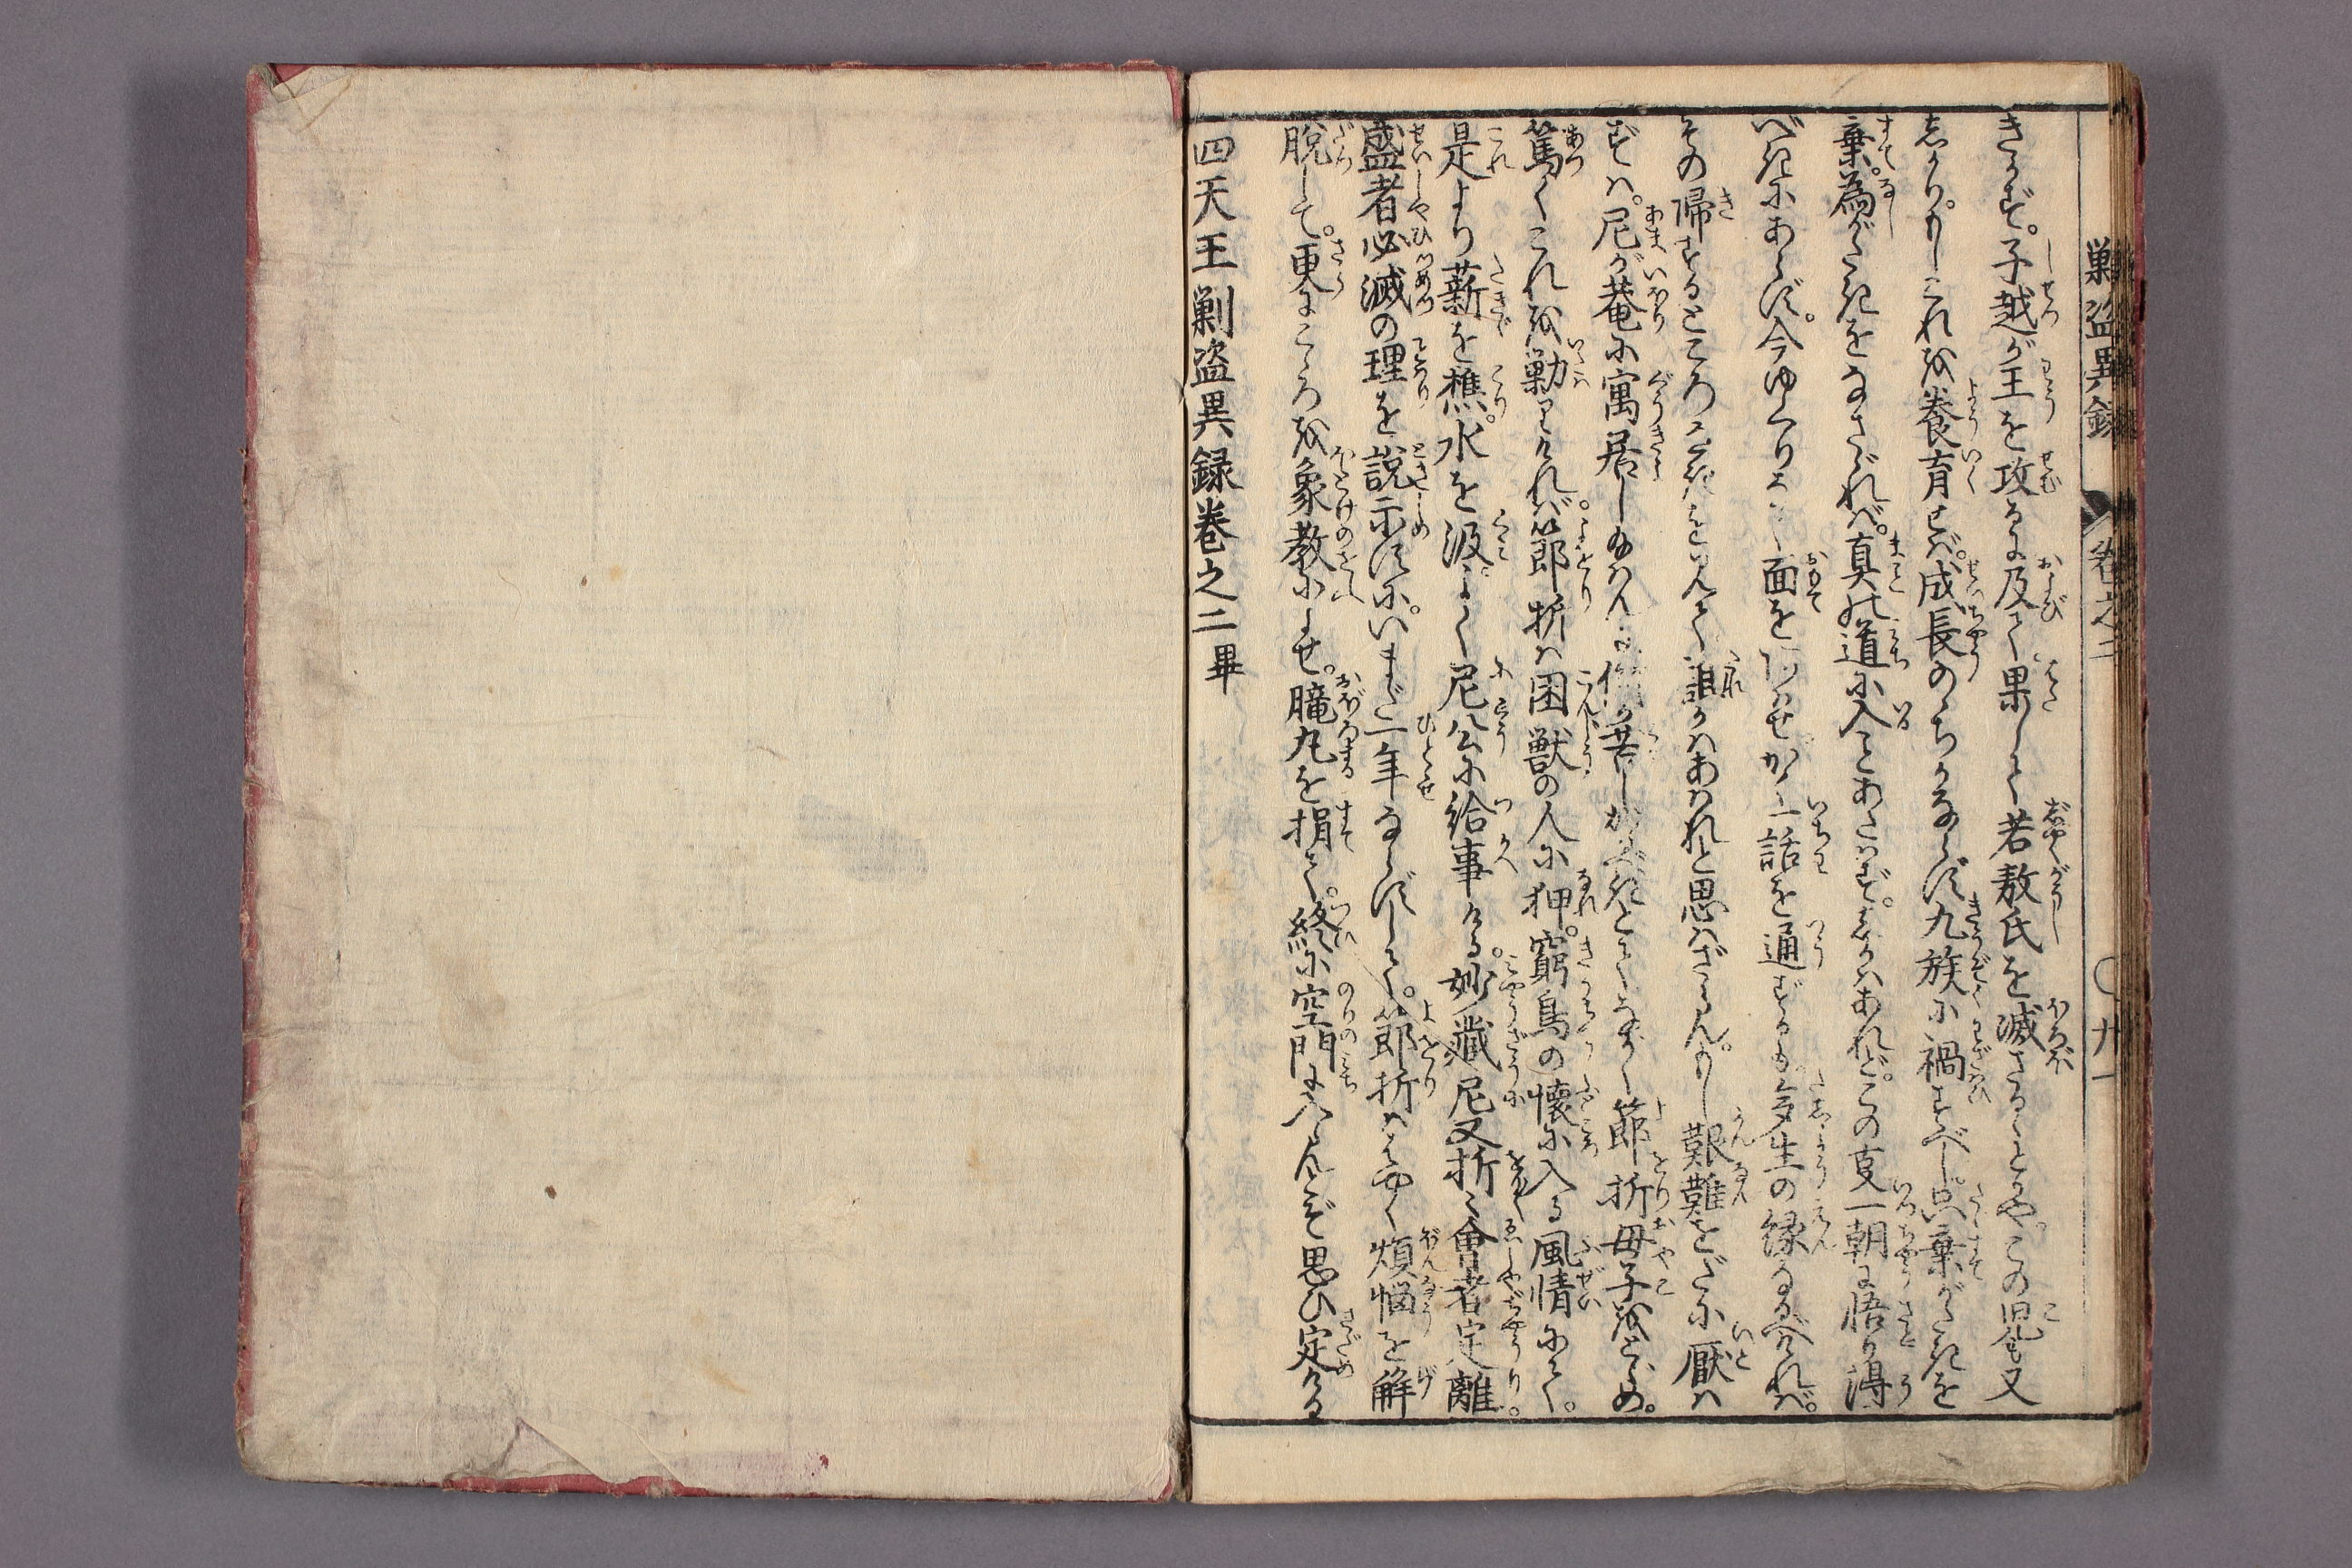 剿盗異録 巻之二 ○廿一
きかず。子越が王を攻るに及て果して若敖氏を滅さるゝとかや。この児も又
しかり。もしこれを養育せば。成長のゝちかならず九族に禍すべし。只棄がたきを
棄。為がたきをなさゞれば。真の道に入ことあたはず。しかはあれど。この支一朝に悟り得
べきにあらず。今ゆくりなく面をあはせがゝ一話を通ずるも。多生の縁なるべければ。
その帰するところをきをいんて誰かはあはれと思はざらん。もし艱難をだに厭は
ずは。尼が菴に寓居し給はん 苦しかるべきとてなすゝ節折母子をとゞめ。
篤くこれを勦りければ。節折は困獣の人に狎。窮鳥の懐に入る風情にて。
是より薪を樵。水を汲 よく尼公に給事ける。妙蔵尼又折々會者定離。
盛者必滅の理を説示すに。いまだ一年ならずして。節折ははやく煩悩を解
脱して。更にこゝろを象教によせ。朧丸を捐て。終に空門に入らんとぞ思ひ定ける
四天王剿盗異録巻之二畢